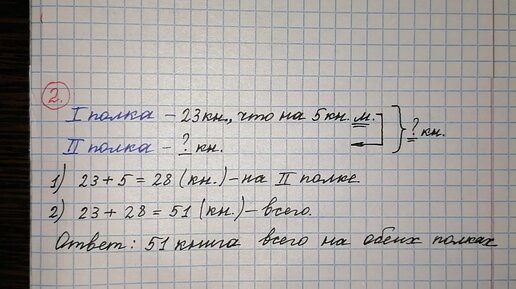 2.
I полка – 23 кн., что на 5 кн. м. } ? кн.
II полка – ? кн.
1) 23 + 5 = 28 (кн.) – на II полке.
2) 23 + 28 = 51 (кн.) – всего.
Ответ: 51 книга всего на обеих полках